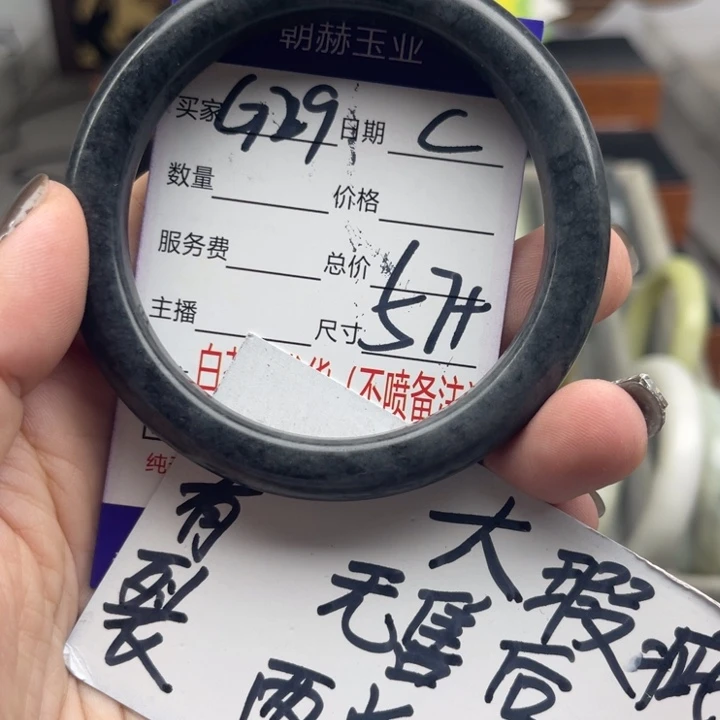 朝赫玉业
买家 G29 日期 C
数量 价格
服务费 总价
主播 尺寸 57H
白 (不喷备注)
纯
有裂
大瑕疵
无售后
两